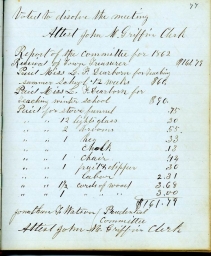 Voted to dissolve the meeting
Attest John M. Griffin Clerk
Report of the Committee for 1862
Received of Town Treasurer $161.79
Paid Miss L. F. Dearborn for teaching
Summer School, 12 weeks
Paid Miss L. Dearborn for
teaching winter school $80.
Paid for stove funnel .75
" " 12 lights glass .30
" " 2 brooms .55
" " 1 key .33
" " Chalk .13
" " 1 chair
" " 1 dipper .30
" " labor 2.31
" " cords of wood
" " 1 " " 3.00
$161.79
Jonathan G. Watson, Prudential
Committee
Attest John M. Griffin Clerk